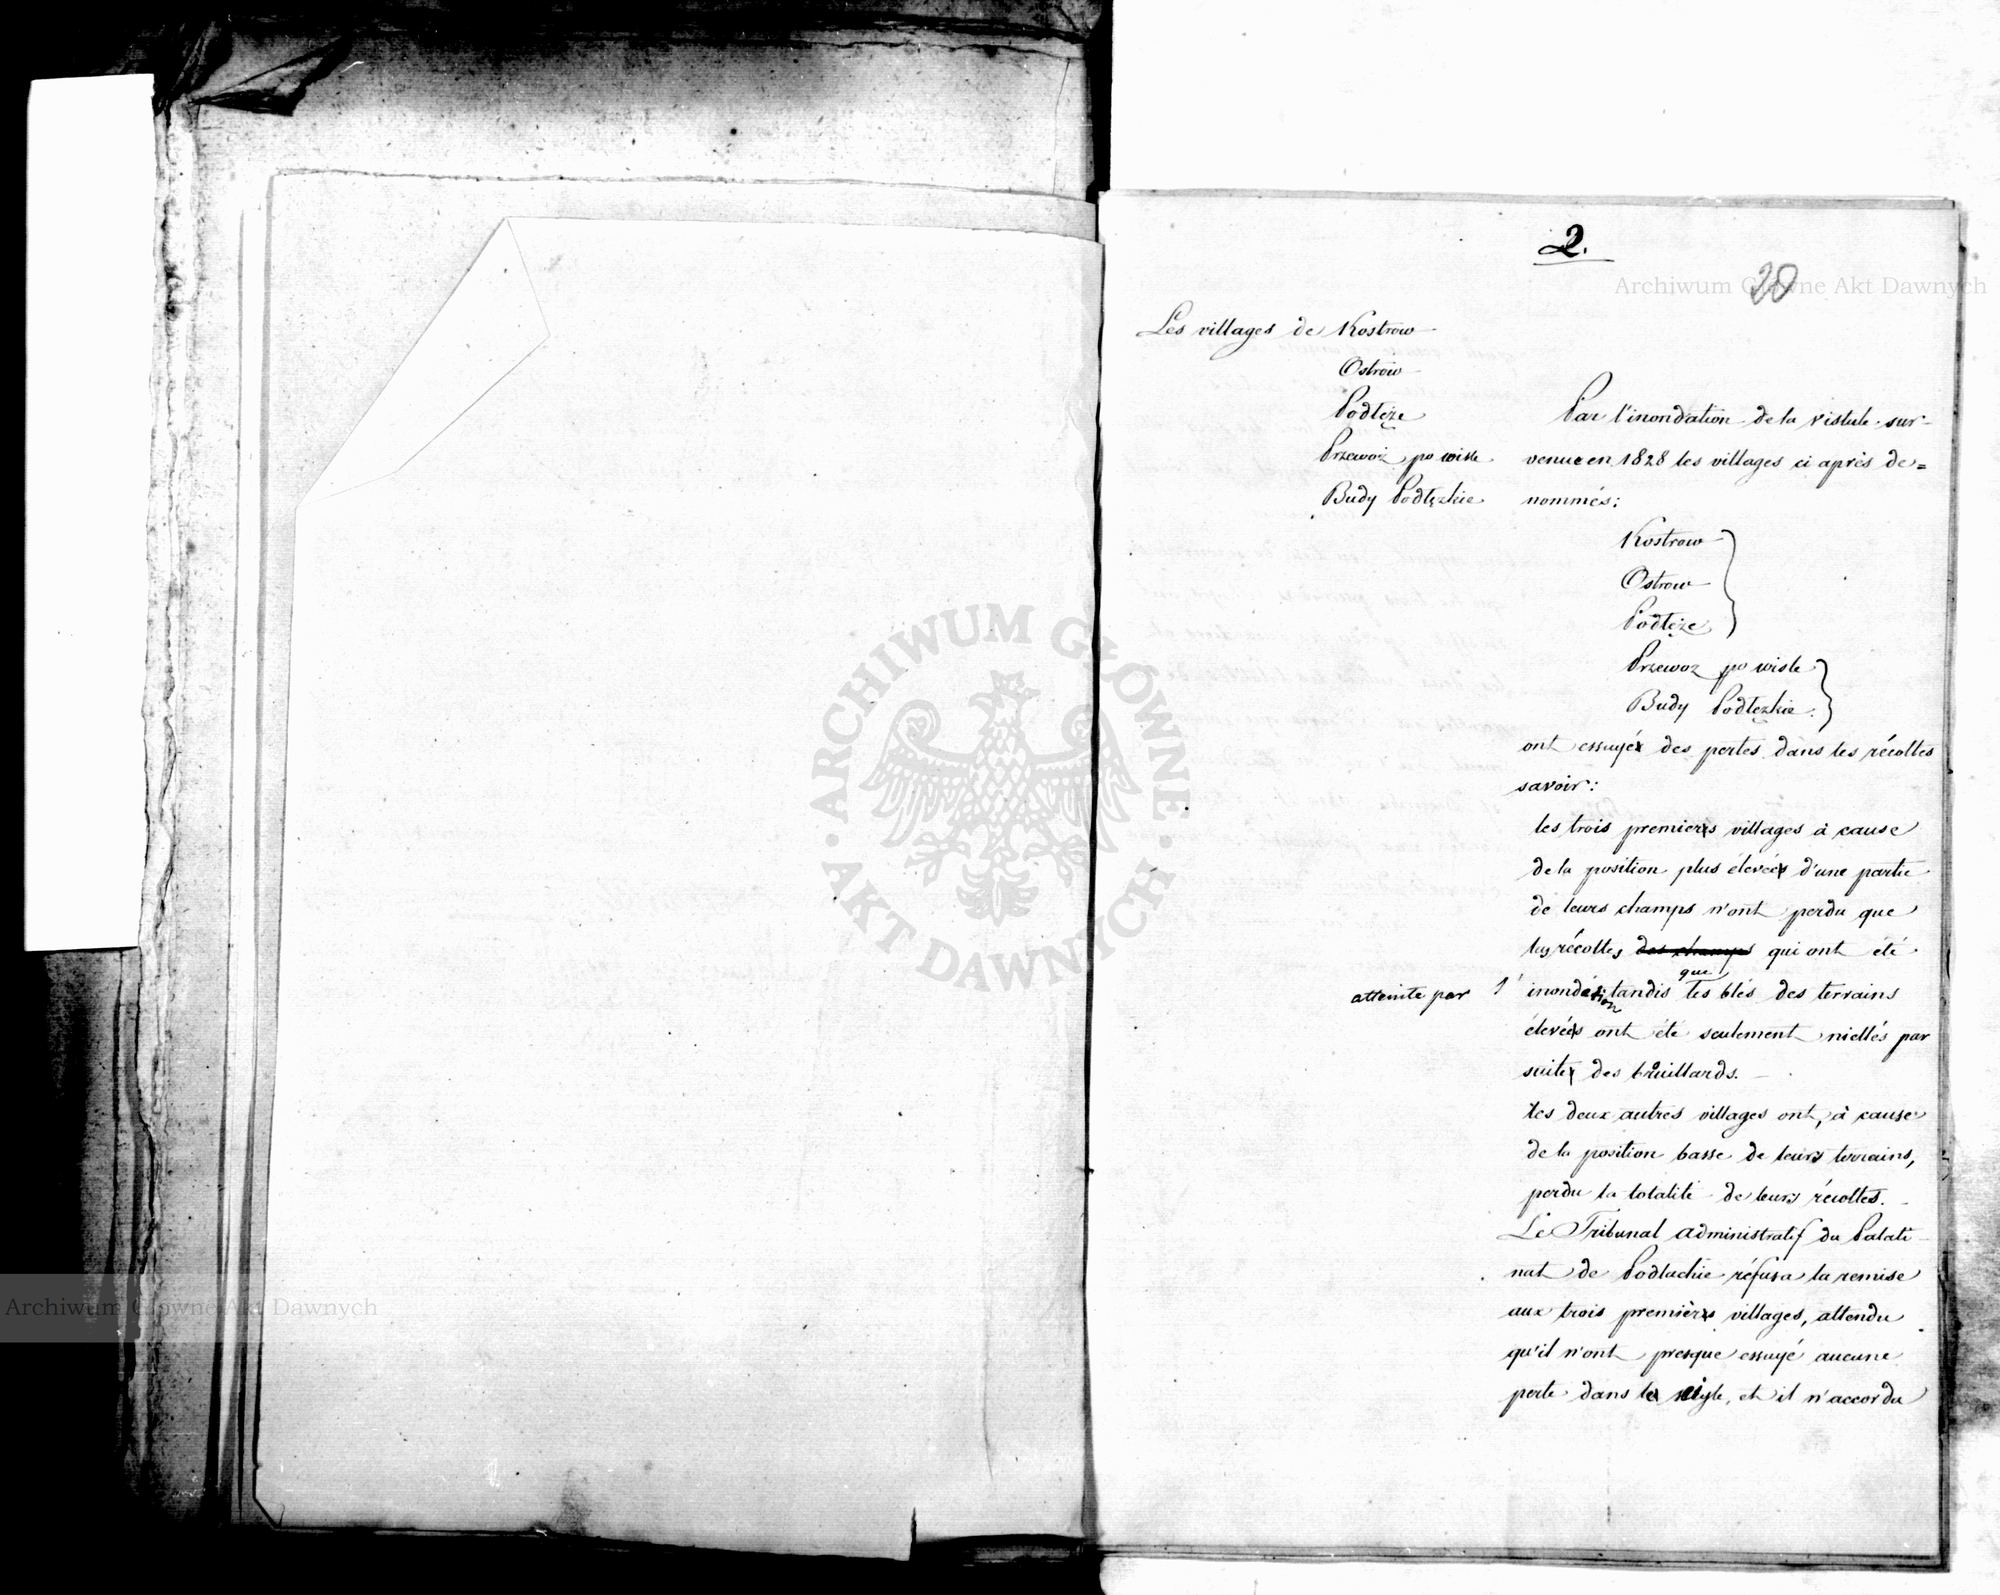 2.
20
Archiwum Głowne Akt Dawnych
Les villages de Kostrow
Ostrow
Podłęże
Przewoz po wiśle
Budy Podłęzkie
Par l'inondation de la Vistule sur-
venue en 1828 les villages ci après de=
nommés:
Kostrow
Ostrow
Podłęże
Przewoz po wisle
Budy Podłęzkie.
ont essuyé des pertes dans les récoltes
savoir:
les trois premiers villages à cause
de la position plus élevée d'une partie
de leurs champs n'ont perdu que
les récoltes des champs qui ont été
atteinte par l'inondation tandis que les blés des terrains
élevés ont été seulement niellés par
suite des brouillards.
les deux autres villages ont, à cause
de la position basse de leurs terrains,
perdu la totalité de leurs récoltes.
Le Tribunal administratif du Palati-
nat de Podlachie réfusa la remise
aux trois premiers villages, attendu
qu'il n'ont presque essuyé aucune
perte dans le seigle, et il n'accorda
ARCHIWUM GŁÓWNE AKT DAWNYCH
Archiwum Głowne Akt Dawnych